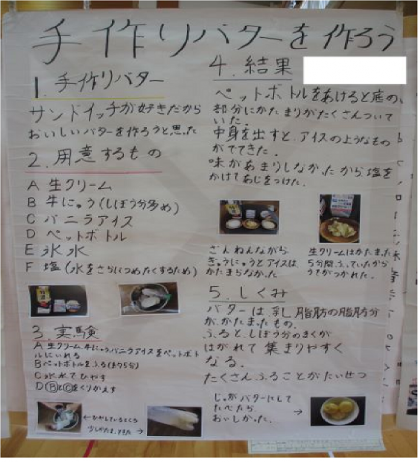 手作りバターを作ろう
1. 手作りバター
サンドイッチが好きだから
おいしいバターを作ろうと思った
2. 用意するもの
A 生クリーム
B 牛にゅう(しぼう分多め)
C バニラアイス
D ペットボトル
E 氷水
F 塩(水をさらにつめたくするため)
3. 実験
A 生クリーム、牛にゅう、バニラアイスをペットボ
トルにいれる
B ペットボトルをふる(ほう5分)
C 氷水でひやす
D ⒷとⒸをくりかえす
←ひやしているところ
4. 結果
ペットボトルをあけると底の
部分にかたまりがたくさんついて
いた。
中身を出すと、アイスのようなもの
がでてきた。
味があまりしなかったから塩を
かけてあじをつけた。
ざんねんながら
ぎゅうにゅうとアイスは
かたまらなかった
生クリームはかたまった
5分間ふっていたから
うでがつかれた。
5. しくみ
バターは乳脂肪の脂肪分
がかたまったもの。
ふるとしぼうのまくが
はがれて集まりやすく
なる。
たくさんふることがたいせつ
じゃがバターにして
たべたら
おいしかった。
→